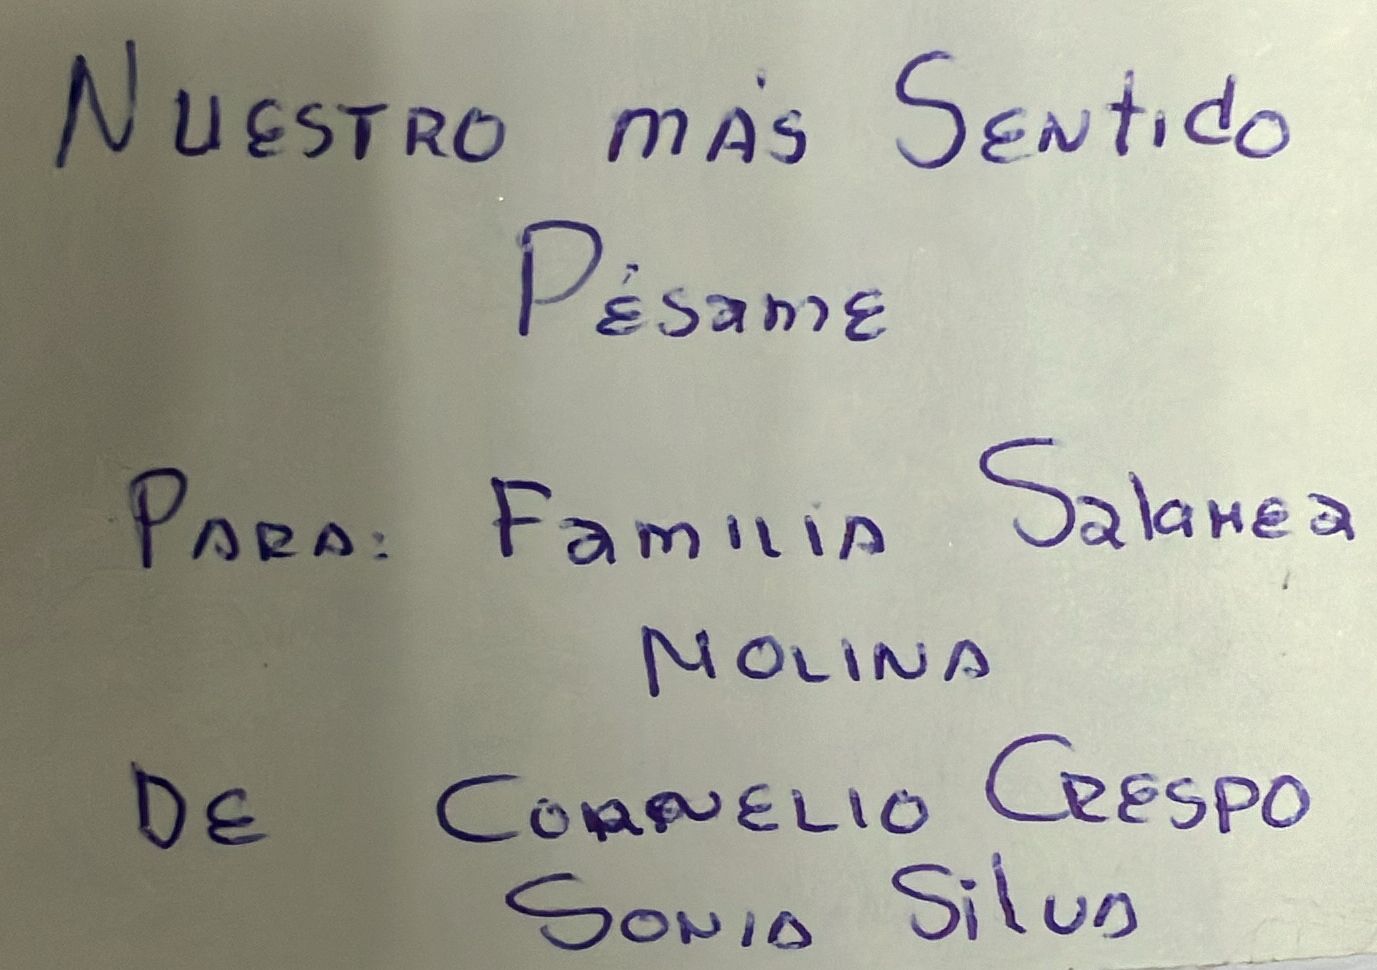 NUESTRO MÁS SENtIdO
PÉSamE
PARA: FamILIA Salamea
MOLINA
DE CORNELIO CRESPO
SONIA SilvA